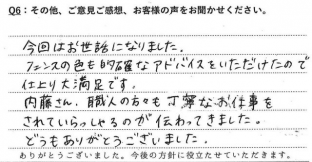 Q6：その他、ご意見ご感想、お客様の声をお聞かせください。
今回はお世話になりました。
フェンスの色も的確なアドバイスをいただけたので
仕上り大満足です。
内藤さん、職人の方々も丁寧なお仕事を
されていらっしゃるのが伝わってきました。
どうもありがとうございました。
ありがとうございました。今後の方針に役立たせていただきます。